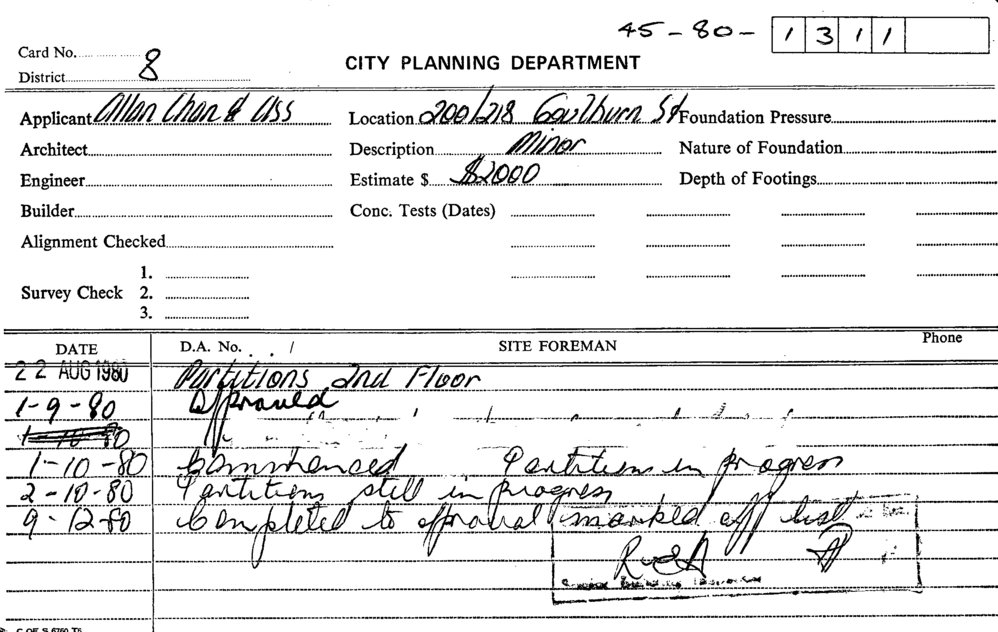 45-80- 1 3 1 1
Card No.
District 8
CITY PLANNING DEPARTMENT
Applicant Allan Chan & Ass Location 200/218 Goulburn St Foundation Pressure
Architect Description Minor Nature of Foundation
Engineer Estimate $ $2000 Depth of Footings
Builder Conc. Tests (Dates)
Alignment Checked
1.
Survey Check 2.
3.
DATE D.A. No. / SITE FOREMAN Phone
22 AUG 1980 Partitions 2nd Floor
1-9-80 Approved
1-10-80
1-10-80 Commenced Partitions in progress
2-10-80 Partitions still in progress
9-12-80 Completed to approval marked off list
C OF S 6760 T5